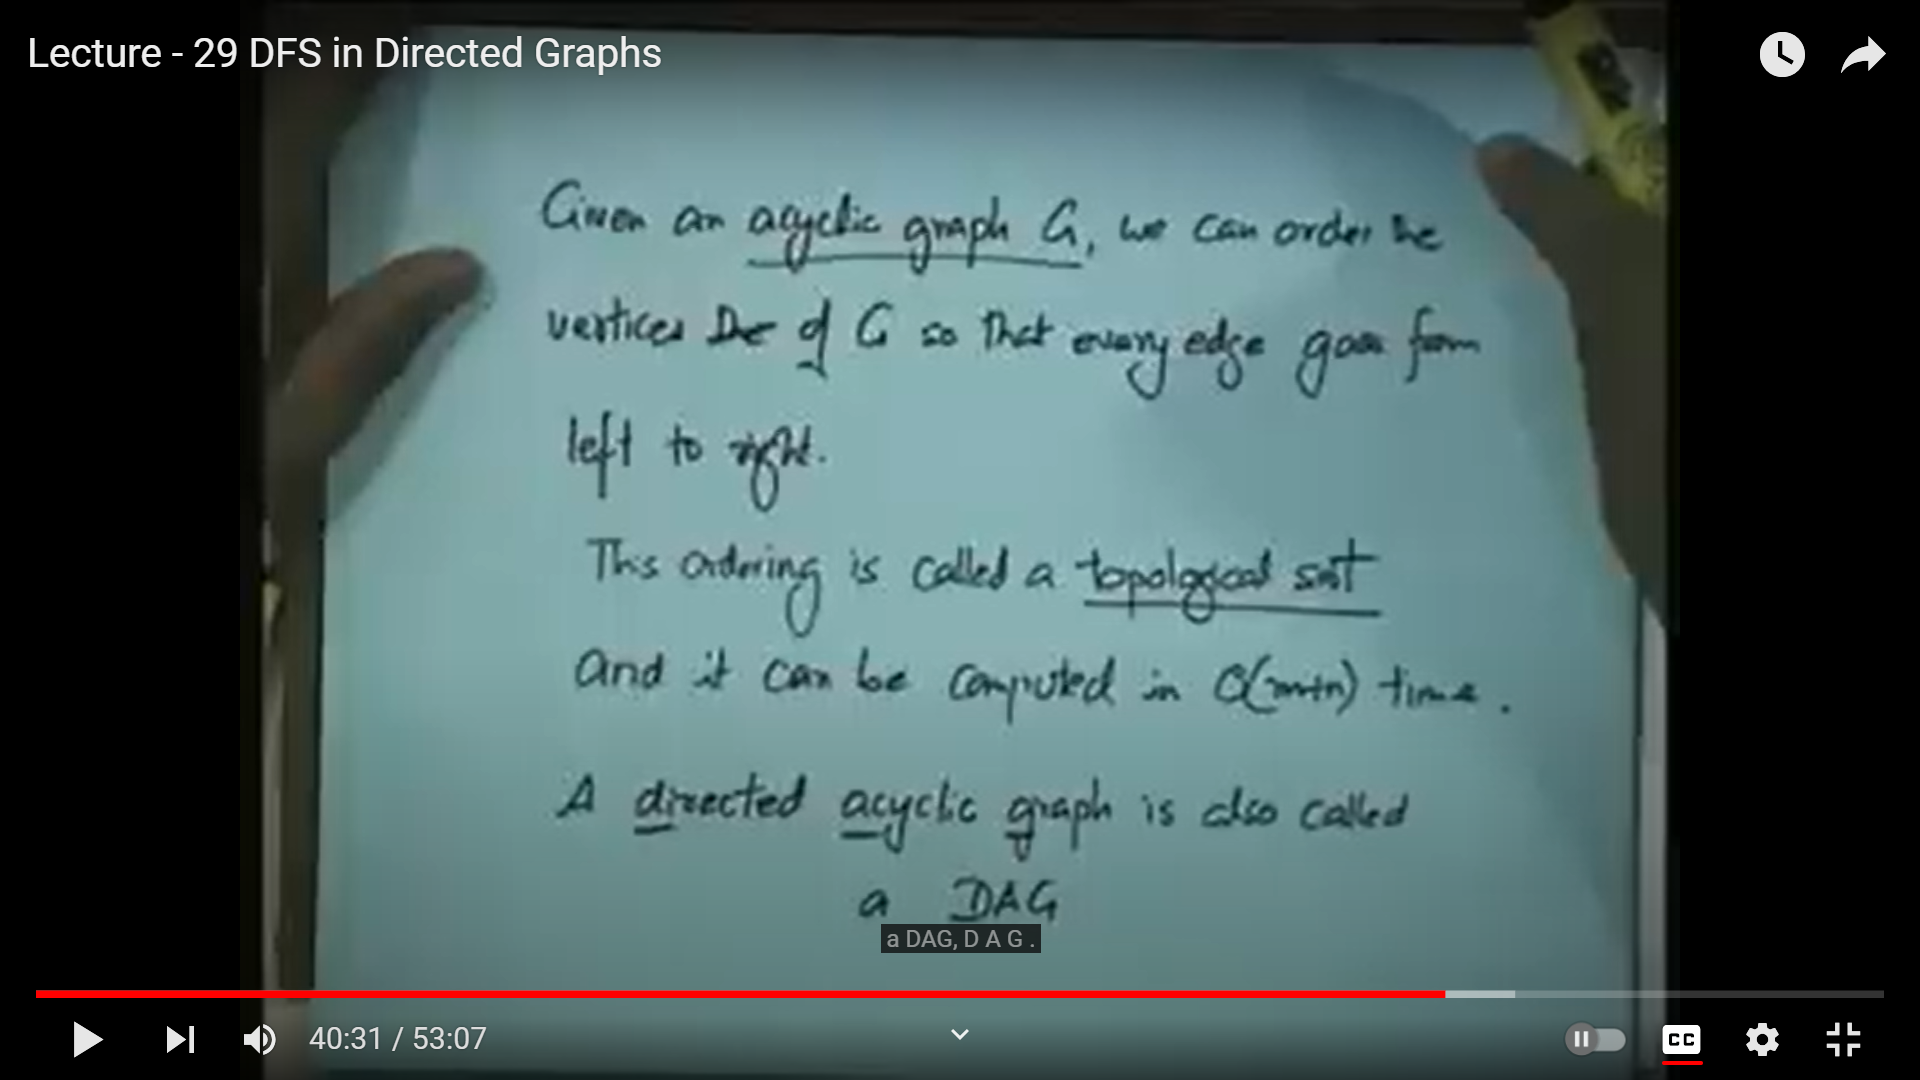 Lecture - 29 DFS in Directed Graphs
Given an acyclic graph G, we can order the
vertices of G so that every edge goes from
left to right.
This ordering is called a topological sort
and it can be computed in O(m+n) time.
A directed acyclic graph is also called
a DAG
a DAG, D A G .
40:31 / 53:07
CC